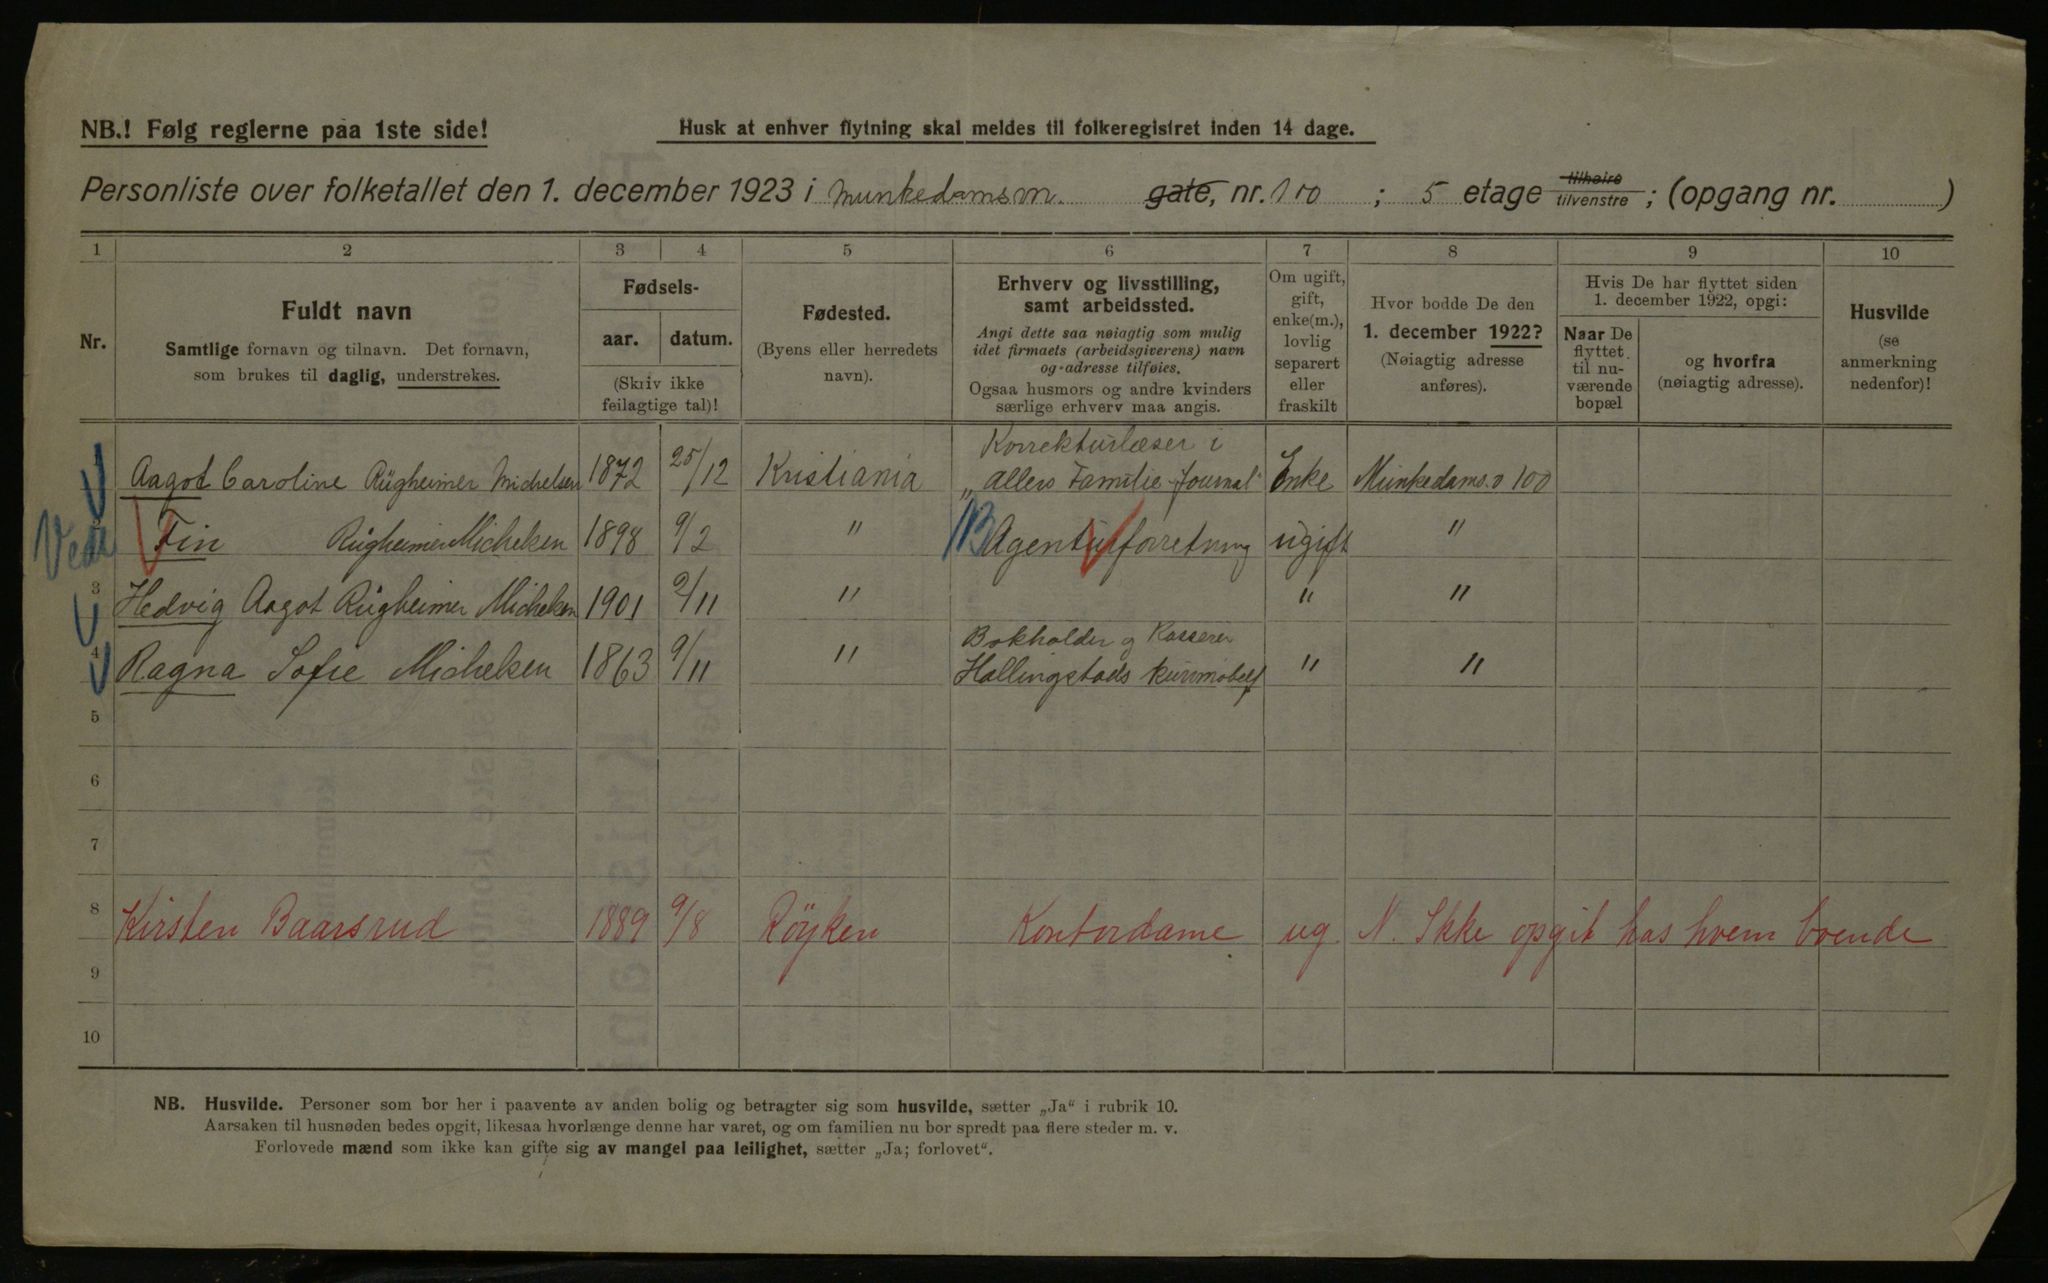 NB.! Følg reglerne paa 1ste side!
Husk at enhver flytning skal meldes til folkeregistret inden 14 dage.
Personliste over folketallet den 1. december 1923 i Munkedamsvn. gate, nr. 100 ; 5 etage tilhøire tilvenstre ; (opgang nr. )
1 2 3 4 5 6 7 8 9 10
Nr.
Fuldt navn
Samtlige fornavn og tilnavn. Det fornavn,
som brukes til daglig, understrekes.
Fødsels-
aar. datum.
(Skriv ikke
feilagtige tal)!
Fødested.
(Byens eller herredets
navn).
Erhverv og livsstilling,
samt arbeidssted.
Angi dette saa nøiagtig som mulig
idet firmaets (arbeidsgiverens) navn
og adresse tilføies.
Ogsaa husmors og andre kvinders
særlige erhverv maa angis.
Om ugift,
gift,
enke(m.),
lovlig
separert
eller
fraskilt
Hvor bodde De den
1. december 1922?
(Nøiagtig adresse
anføres).
Hvis De har flyttet siden
1. december 1922, opgi:
Naar De
flyttet
til nu-
værende
bopæl
og hvorfra
(nøiagtig adresse).
Husvilde
(se
anmerkning
nedenfor)!
Korrekturlæser i
Aagot Caroline Rügheimer Michelsen 1872 25/12 Kristiania „Allers Familie-Journal" Enke Munkedams.v 100
2 Fin Rügheimer Michelsen 1898 9/2 " Agenturforretning ugift "
3 Hedvig Aagot Rügheimer Michelsen 1901 9/11 " " "
Bokholder og Kasserer
4 Ragna Sofie Michelsen 1863 9/11 " Hallingstads " "
5
6
7
8 Kirsten Baarsrud 1889 9/8 Röyken Kontordame ug. N. Ikke opgit hos hvem boende
9
10
NB. Husvilde. Personer som bor her i paavente av anden bolig og betragter sig som husvilde, sætter „Ja" i rubrik 10.
Aarsaken til husnøden bedes opgit, likesaa hvorlænge denne har varet, og om familien nu bor spredt paa flere steder m. v.
Forlovede mænd som ikke kan gifte sig av mangel paa leilighet, sætter „Ja; forlovet".